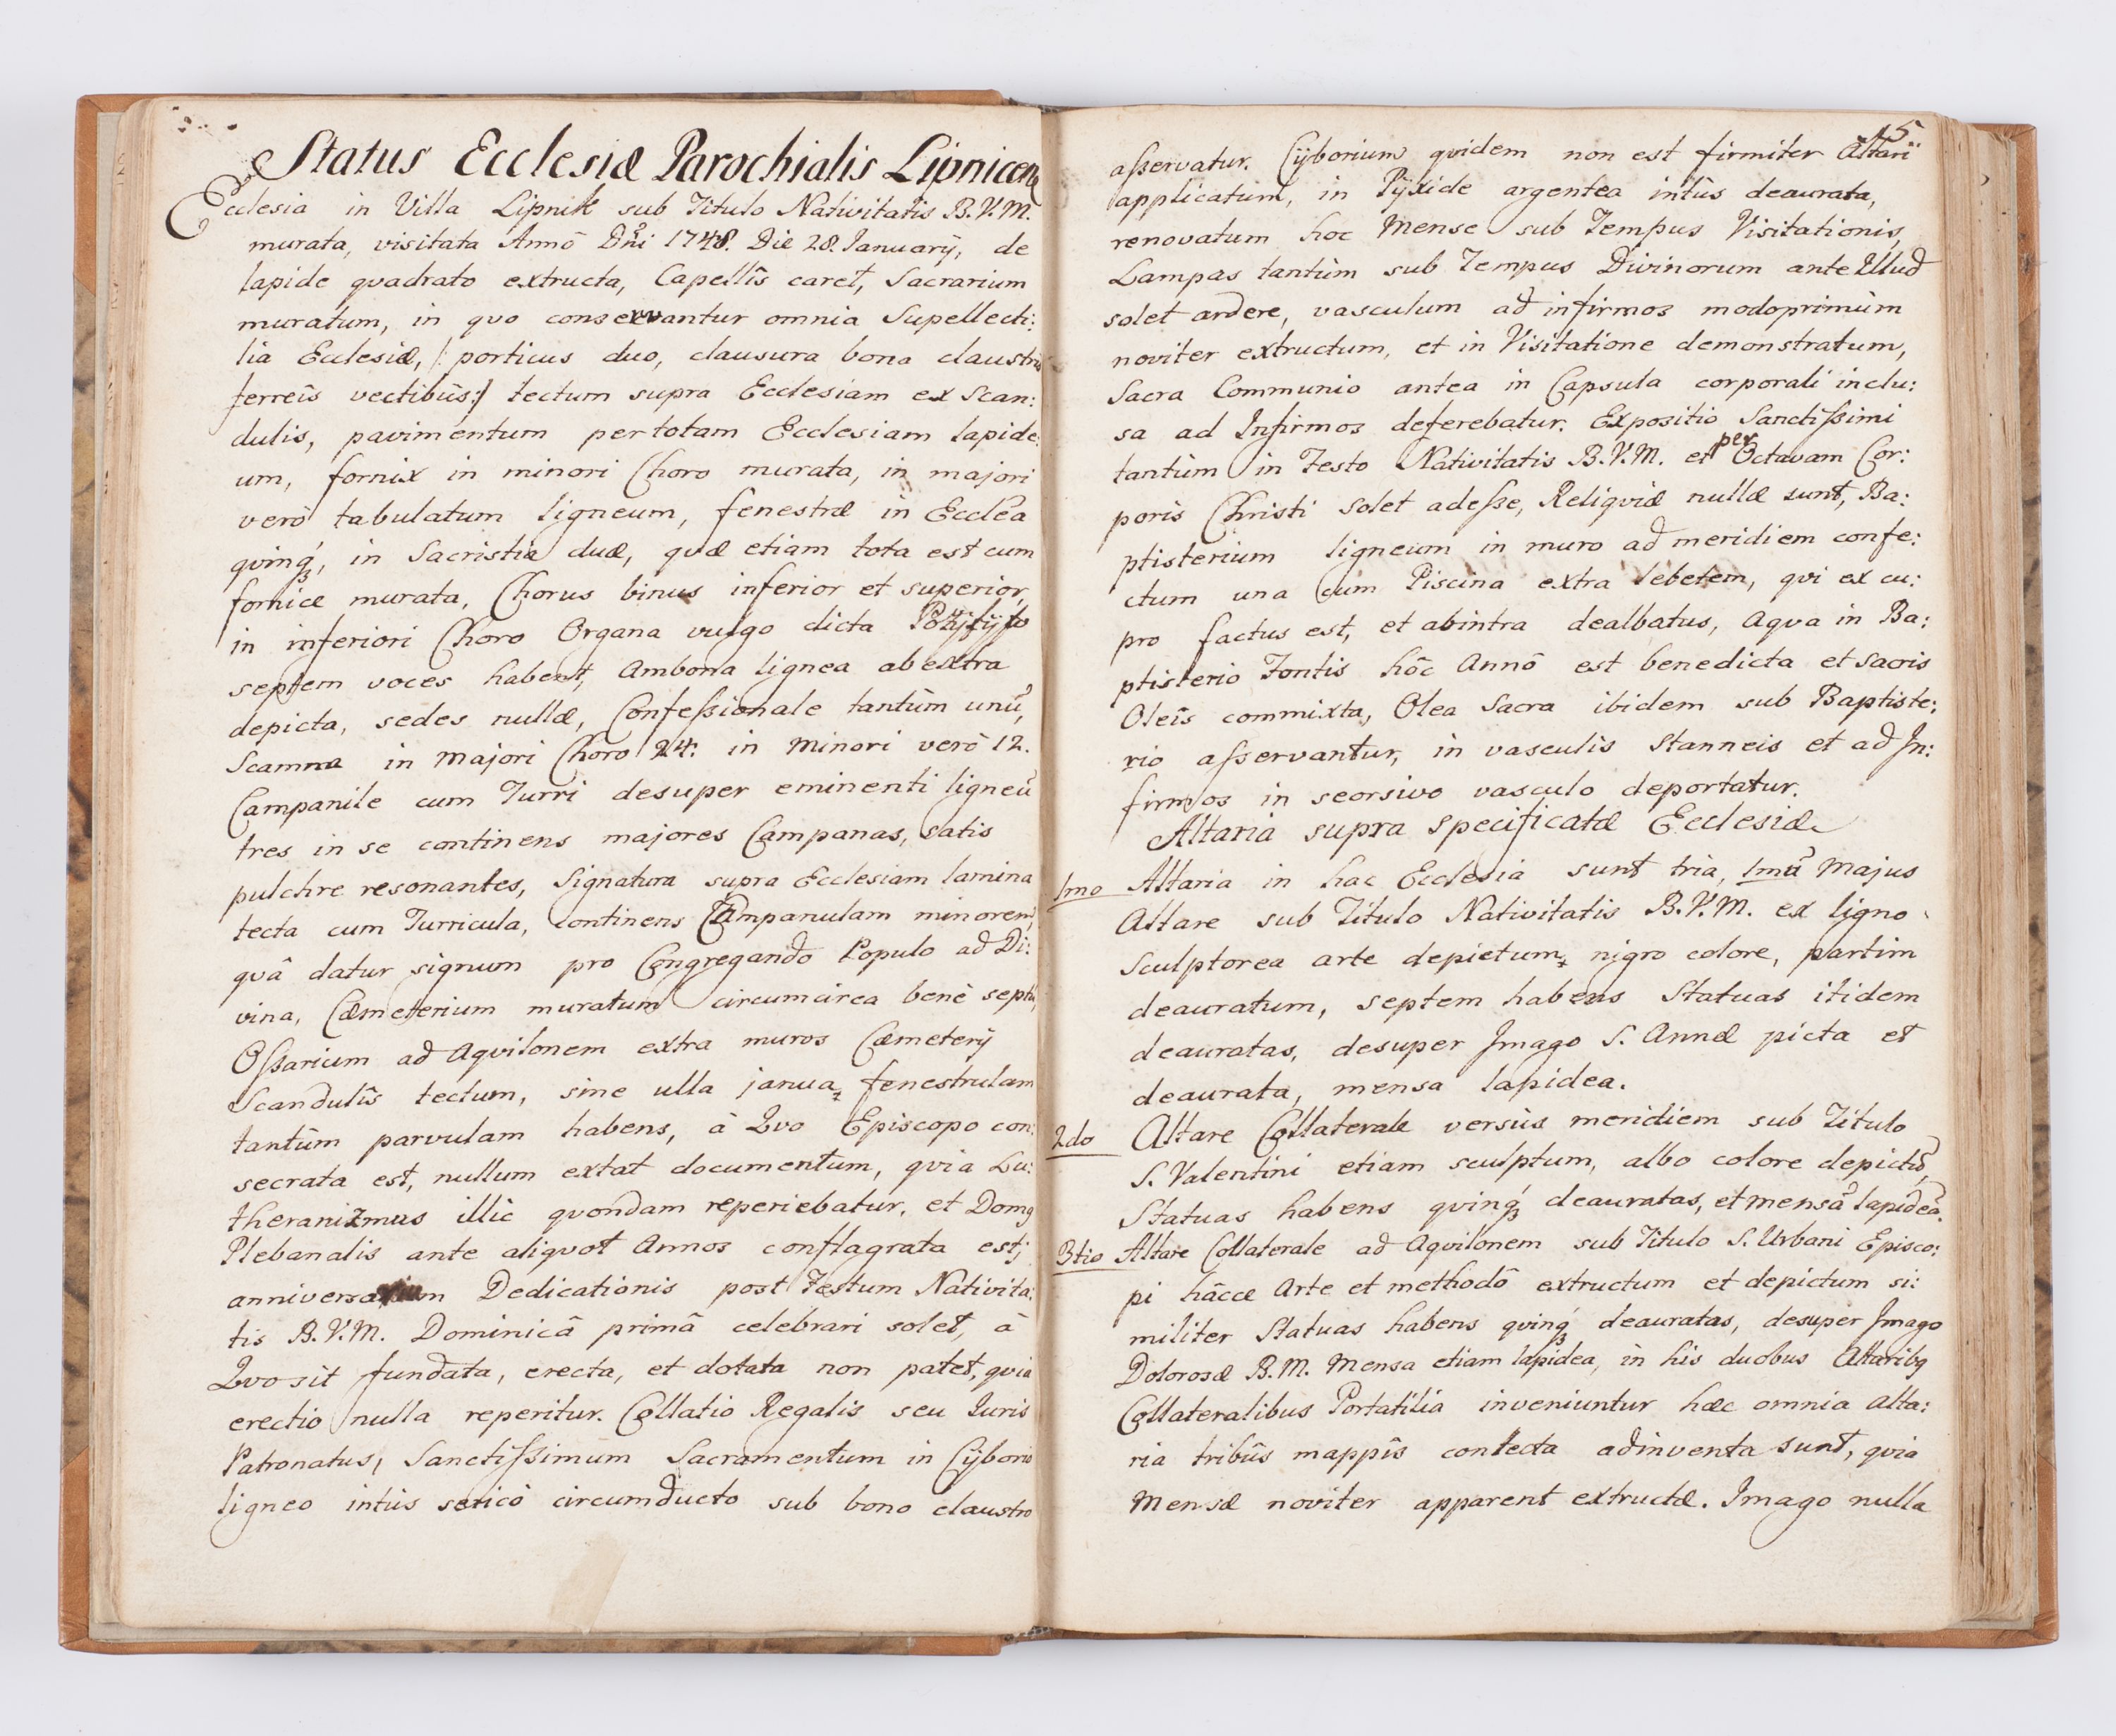 Status Ecclesiæ Parochialis Lipnicen
Ecclesia in Villa Lipnik sub Titulo Nativitatis B.V.M.
murata, visitata Annô Dñi 1748. Die 28. Januarÿ, de
lapide quadrato extructa, Capellîs caret, Sacrarium
muratum, in quo conservantur omnia Supellecti:
lia Ecclesiæ, /: porticus duo, clausura bona claustris
ferreîs vectibûs:/ tectum supra Ecclesiam ex Scan:
dulis, pavimentum per totam Ecclesiam lapide:
um, fornix in minori Choro murata, in majori
verò tabulatum ligneum, fenestræ in Ecclêa
qvinq́ꝫ, in Sacristia duæ, quæ etiam tota est cum
fornice murata, Chorus binus inferior et superior,
in inferiori Choro Organa vulgo dicta
septem voces habent, Ambona lignea ab extra
depicta, sedes nullæ, Confeſsionale tantùm unū,
Scamna in majori Choro 24: in minori verò 12.
Campanile cum Turri desuper eminenti ligneū
tres in se continens majores Campanas, satis
pulchre resonantes, Signatura supra Ecclesiam lamina
tecta cum Turricula, continens Campanulam minorem,
quâ datur signum pro Congregando Populo ad Di:
vina, Cæmeterium muratum circumcirca benè septū,
Oſsarium ad Aqvilonem extra muros Cæmeterÿ
Scandulîs tectum, sine ulla janua, fenestrulam
tantùm parvulam habens, à Qvo Episcopo con:
secrata est, nullum extat documentum, qvia Lu:
theranizmus illîc qvondam reperiebatur, et Domꝯ
Plebanalis ante aliqvot Annos conflagrata est;
anniversarium Dedicationis post Festum Nativita:
tis B.V.M. Dominicâ primâ celebrari solet, à
Qvo sit fundata, erecta, et dotata non patet, qvia
erectio nulla reperitur. Collatio Regalis seu Juris
Patronatus, Sanctiſsimum Sacramentum in Cÿborio
ligneo intùs sericô circumducto sub bono claustro
15
aſservatur. Cÿborium qvidem non est firmiter Altari
applicatum, in Pÿxide argentea intùs deaurata,
renovatum hoc Mense sub Tempus Visitationis,
Lampas tantùm sub Tempus Divinorum ante Illud
solet ardere, vasculum ad infirmos modoprimùm
noviter extructum, et in Visitatione demonstratum,
Sacra Communio antea in Capsula corporali inclu:
sa ad Infirmos deferebatur. Expositio Sanctiſsimi
tantùm in Festo Nativitatis B.V.M. et per Octavam Cor:
poris Christi solet adeſse, Reliqviæ nullæ sunt, Ba:
ptisterium ligneum in muro ad meridiem confe:
ctum una cum Piscina extra lebetem, qvi ex cu:
pro factus est, et abintra dealbatus, Aqva in Ba:
ptisterio Fontis hôc Annô est benedicta et sacris
Oleîs commixta, Olea Sacra ibidem sub Baptiste:
rio aſservantur, in vasculis Stanneis et ad In:
firmos in seorsivo vasculo deportatur.
Altaria supra specificatæ Ecclesiæ
1mo Altaria in hac Ecclesia sunt tria, 1mū Majus
Altare sub Titulo Nativitatis B.V.M. ex ligno
Sculptorea arte depictum, nigro colore, partim
deauratum, septem habens Statuas itidem
deauratas, desuper Imago S. Annæ picta et
deaurata, mensa lapidea.
2do Altare Collaterale versùs meridiem sub Titulo
S. Valentini etiam sculptum, albo colore depictū,
Statuas habens qvinq́ꝫ deauratas, et mensā lapideā.
3tio Altare Collaterale ad Aqvilonem sub Titulo S. Urbani Episco:
pi hâcce Arte et methodô extructum et depictum si:
militer Statuas habens qvinq́ꝫ deauratas, desuper Imago
Dolorosæ B.M. Mensa etiam lapidea, in his duobus Altaribꝯ
Collateralibus Portatilia inveniuntur hæc omnia Alta:
ria tribûs mappîs contecta adinventa sunt, qvia
Mensæ noviter apparent extructæ. Imago nulla